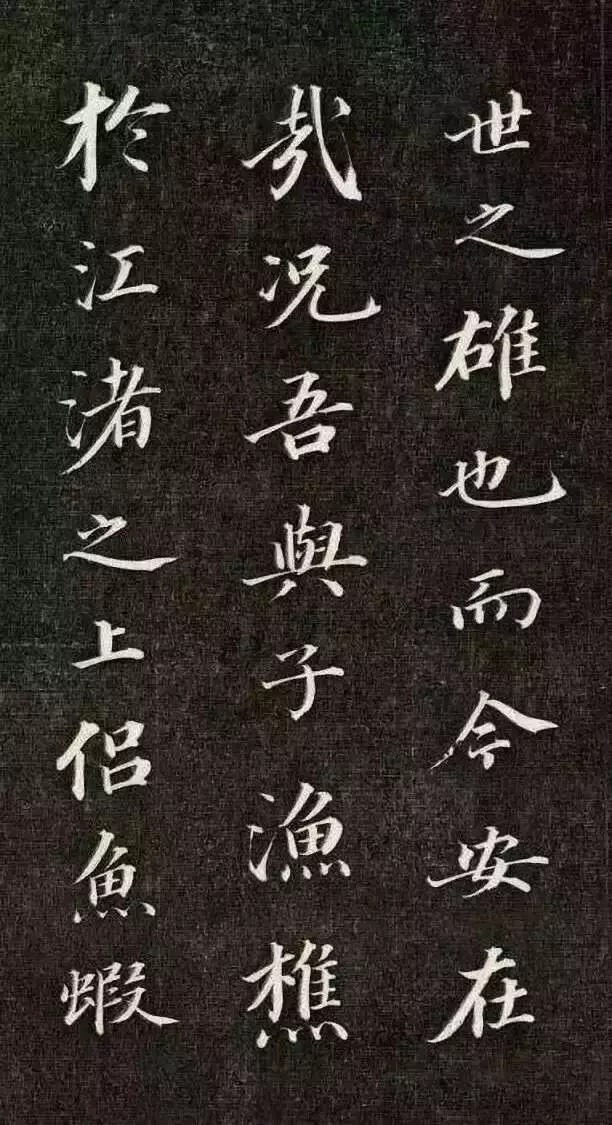 世之雄也而今安在
哉況吾與子漁樵
於江渚之上侶魚蝦